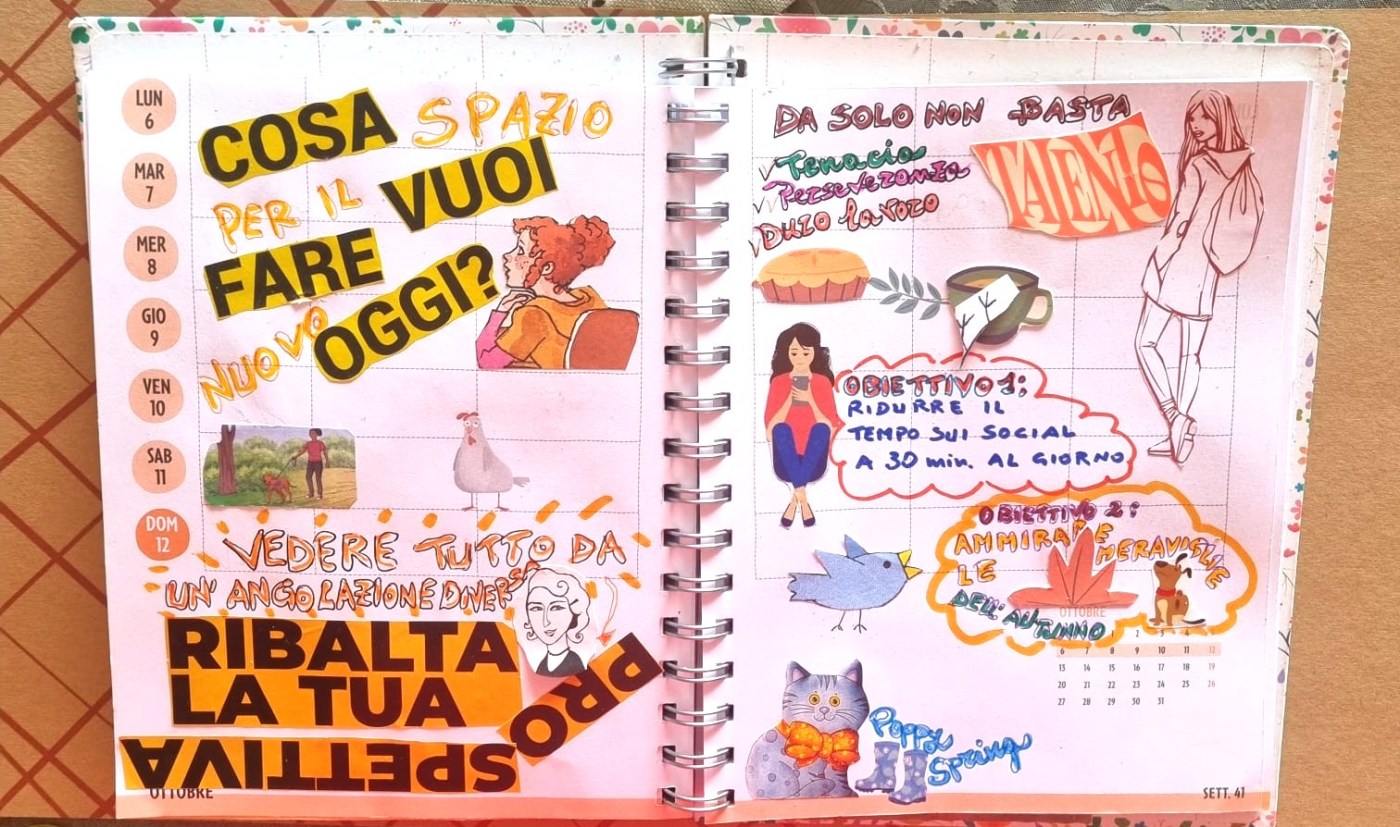 LUN
6
MAR
7
MER
8
GIO
9
VEN
10
SAB
11
DOM
12
COSA SPAZIO
PER IL VUOI
FARE
NUOVO OGGI?
VEDERE TUTTO DA
UN'ANGOLAZIONE DIVERSA
RIBALTA
LA TUA
PRO
SPETTIVA
OTTOBRE
DA SOLO NON BASTA
TALENTO
Tenacia
Perseveranza
Duro lavoro
OBIETTIVO 1:
RIDURRE IL
TEMPO SUI SOCIAL
A 30 min. AL GIORNO
OBIETTIVO 2:
AMMIRARE
LE MERAVIGLIE
DELL'AUTUNNO
OTTOBRE
1 2 3 4
6 7 8 9 10 11 12
13 14 15 16 17 18 19
20 21 22 23 24 25 26
27 28 29 30 31
Poppy
Spring
SETT. 41